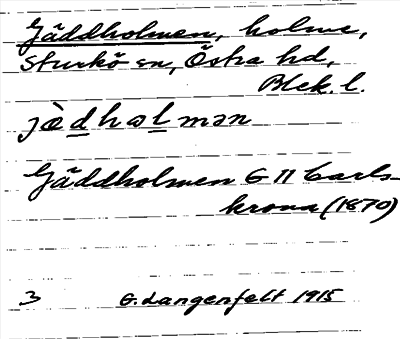 Gäddholmen, holme,
Sturkö sn, Östra hd,
Blek. l.
jèdhɷlmən
Gäddholmen G II Carls-
krona (1870)
3 G. Langenfelt 1915